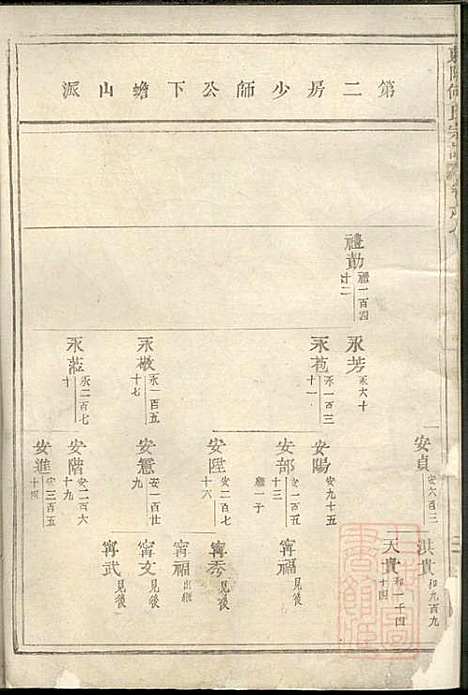 東陽何氏宗譜
第二房少師公下蟾山派
禮勛 禮一百四十二
永芳 永六十
永苞 永一百三十一
永敬 永一百五十七
永蒞 永二百七十
安貞 安六百三
安陽 安九十五
安部 安一百五十三 繼一子
安陞 安二百七十六
安憲 安一百廿九
安階 安二百六十九
安進 安三百五十四
洪貴 和九百九
天貴 和一千四十四
甯福 見後
甯秀 見後
甯福 出繼
甯文 見後
甯武 見後